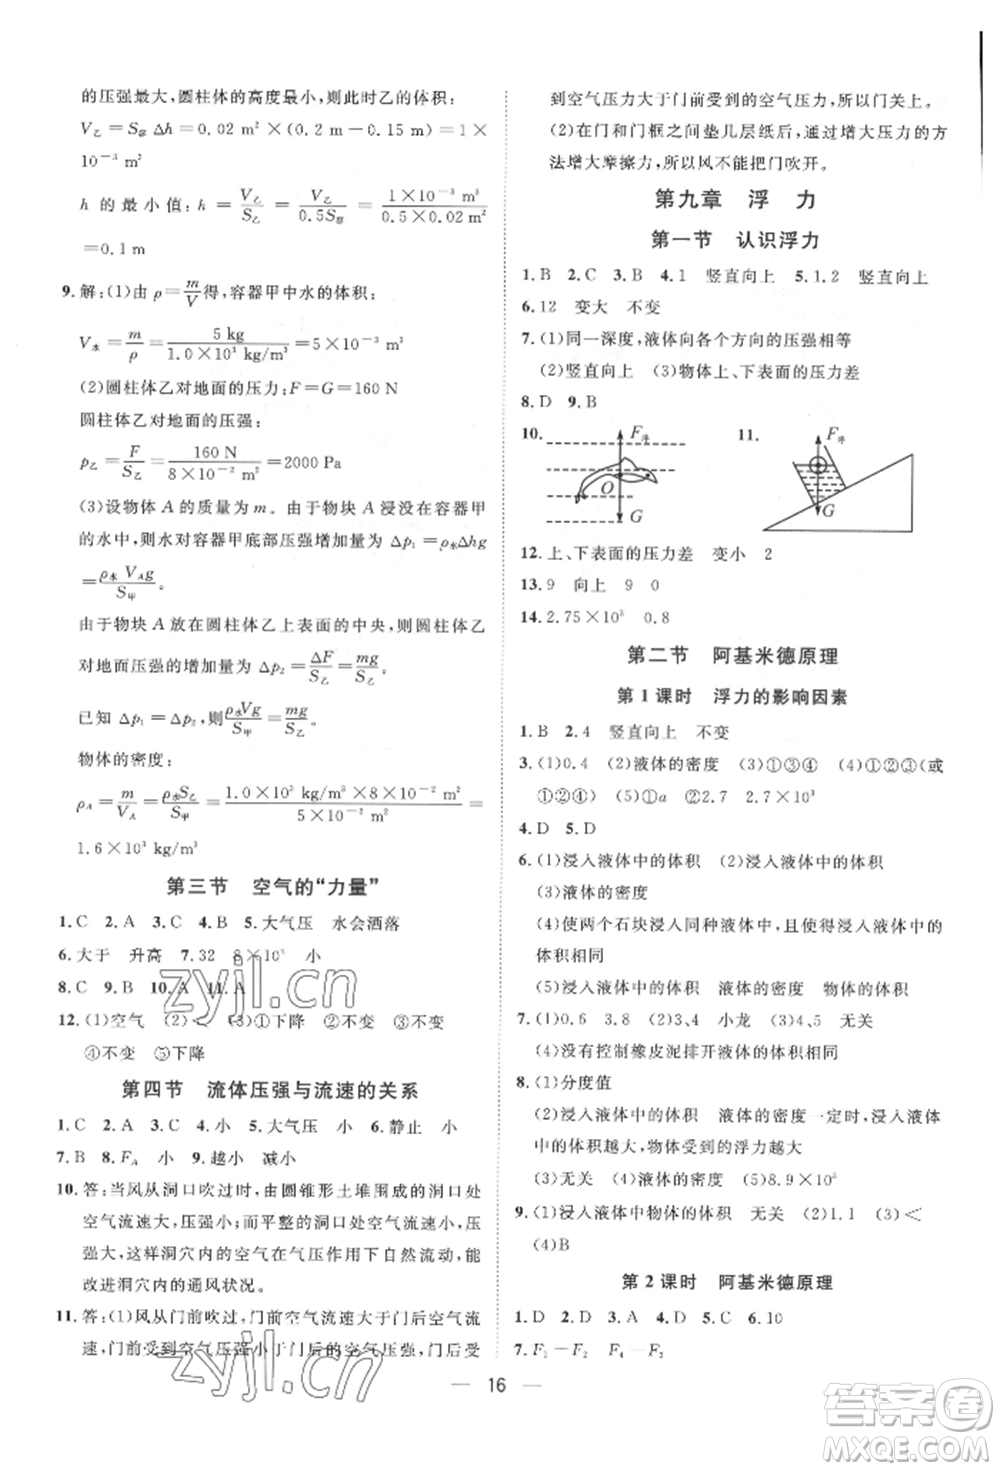 的压强最大,圆柱体的高度最小,则此时乙的体积:
V乙=S容Δh=0.02 m²×(0.2 m-0.15 m)=1×
10⁻³ m³
h 的最小值:h=V乙/S乙=V乙/0.5S容=1×10⁻³ m³/0.5×0.02 m²
=0.1 m
9.解:(1)由 ρ=m/V得,容器甲中水的体积:
V水=m/ρ=5 kg/1.0×10³ kg/m³=5×10⁻³ m³
(2)圆柱体乙对地面的压力:F=G=160 N
圆柱体乙对地面的压强:
p乙=F/S乙=160 N/8×10⁻² m²=2000 Pa
(3)设物体 A 的质量为 m。由于物块 A 浸没在容器甲
的水中,则水对容器甲底部压强增加量 Δp₁=ρ水Δhg=
ρ水V_A g/S甲。
由于物块 A 放在圆柱体乙上表面的中央,则圆柱体乙
对地面压强的增加量 Δp₂=ΔF/S乙=mg/S乙。
已知 Δp₁=Δp₂,则ρ水Vg/S甲=mg/S乙。
物体的密度:
ρ_A=m/V_A=ρ水S乙/S甲=1.0×10³ kg/m³×8×10⁻² m²/5×10⁻² m²=
1.6×10³ kg/m³
第三节 空气的“力量”
1.C 2.A 3.C 4.B 5.大气压 水会洒落
6.大于 升高 7.32 8×10⁵ 小
8.C 9.B 10.A 11.A
12.(1)空气 (2)< (3)①下降 ②不变 ③不变
④不变 ⑤下降
第四节 流体压强与流速的关系
1.C 2.A 3.C 4.小 5.大气压 小 6.静止 小
7.B 8.F_A 9.越小 减小
10.答:当风从洞口吹过时,由圆锥形土堆围成的洞口处
空气流速大,压强小;而平整的洞口处空气流速小,压
强大,这样洞穴内的空气在气压作用下自然流动,能
改进洞穴内的通风状况。
11.答:(1)风从门前吹过,门前空气流速大于门后空气流
速,门前受到空气压强小于门后的空气压强,门后受
到空气压力大于门前受到的空气压力,所以门关上。
(2)在门和门框之间垫几层纸后,通过增大压力的方
法增大摩擦力,所以风不能把门吹开。
第九章 浮 力
第一节 认识浮力
1.B 2.C 3.B 4.1 竖直向上 5.1.2 竖直向上
6.12 变大 不变
7.(1)同一深度,液体向各个方向的压强相等
(2)竖直向上 (3)物体上、下表面的压力差
8.D 9.B
10. F浮 O G 11. F浮 G
12.上、下表面的压力差 变小 2
13.9 向上 9 0
14.2.75×10³ 0.8
第二节 阿基米德原理
第 1 课时 浮力的影响因素
1.B 2.4 竖直向上 不变
3.(1)0.4 (2)液体的密度 (3)①③④ (4)①②③(或
①②④) (5)①a ②2.7 2.7×10³
4.D 5.D
6.(1)浸入液体中的体积 (2)浸入液体中的体积
(3)液体的密度
(4)使两个石块浸入同种液体中,且浸入液体中的
体积相同
(5)浸入液体中的体积 液体的密度 物体的体积
7.(1)0.6 3.8 (2)3,4 小龙 (3)4,5 无关
(4)没有控制橡皮泥排开液体的体积相同
8.(1)分度值
(2)浸入液体中的体积 液体的密度一定时,浸入液体
中的体积越大,物体受到的浮力越大
(3)无关 (4)液体的密度 (5)8.9×10³
9.(1)浸入液体中物体的体积 无关 (2)1.1 (3)<
(4)B
第 2 课时 阿基米德原理
1.D 2.D 3.B 4.C 5.C 6.10
7.F₁-F₂ F₄-F₃
16
zyjl.cn
zyjl.cn
答案圈
MXQE.COM